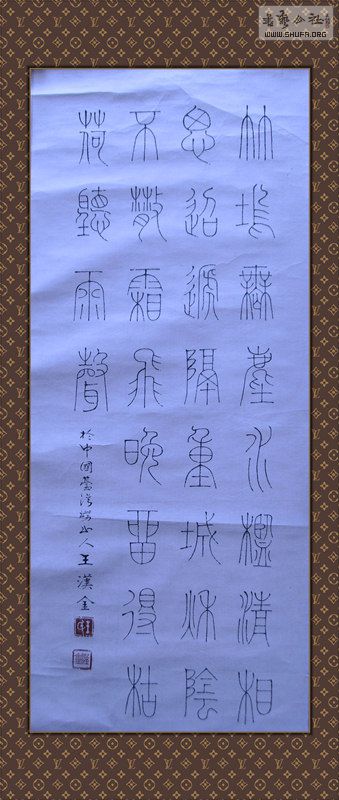 書藝公社
WWW.SHUFA.ORG
竹塢無塵水檻清相
思迢遞隔重城秋陰
不散霜飛晚留得枯
荷聽雨聲
於中國臺灣山人王漢金